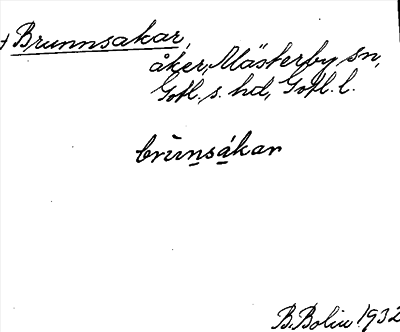 + Brunnsakar,
åker, Mästerby sn,
Gotl. s. hd, Gotl. l.
brùnsákar
B. Bolin 1932